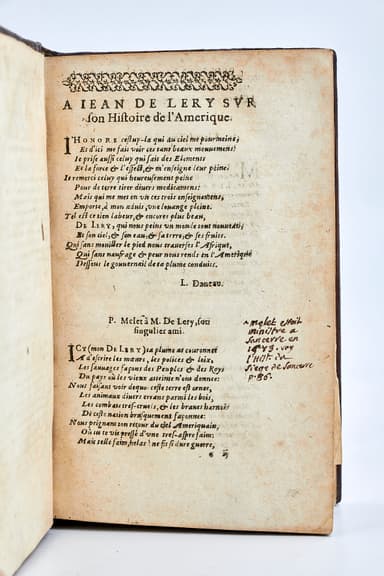 A IEAN DE LERY SVR
son Histoire de l'Amerique.
I'HONORE cestuy-la qui au ciel me pourmeine,
Et d'ici me fait voir ces tant beaux mouuemens:
Ie prise aussi celuy qui sait des Elemens
Et la force & l'effect, & m'enseigne leur peine:
Ie remercie celuy qui heureusement peine
Pour de terre tirer diuers medicamens:
Mais qui me met en vn ces trois enseignemens,
Emporte, à mon aduis, vne louange pleine.
Tel est ce tien labeur, & encores plus beau,
DE LERY, qui nous peins vn monde tout nouueau,
Et son ciel, & son eau, & sa terre, & ses fruits.
Qui sans mouiller le pied nous trauerses l'Afrique,
Qui sans naufrage & peur nous rends en l'Amerique
Dessous le gouuernail de ta plume conduits.
L. Daneau.
P. Melet à M. De Lery, son
singulier ami.
ICY (mon DE LERY) ta plume as couronné
A d'escrire les mœurs, les polices & loix,
Les sauuages façons des Peuples & des Roys
Du pays où les vieux
Nous faisant voir dequoy ceste terre est ornee,
Les animaux diuers errans parmi les bois,
Les combats tres-cruels, & les braues harnois
De ceste nation brusquement façonnee:
Nous peignant ton retour du ciel Ameriquain,
Où tu te vis pressé d'vne tres-aspre faim:
Mais telle faim, helas! ne fit si dure guerre,
Melet estoit
ministre a
Sancerre en
1573. voy
l'Hist. du
Siege de Sancerre
p.